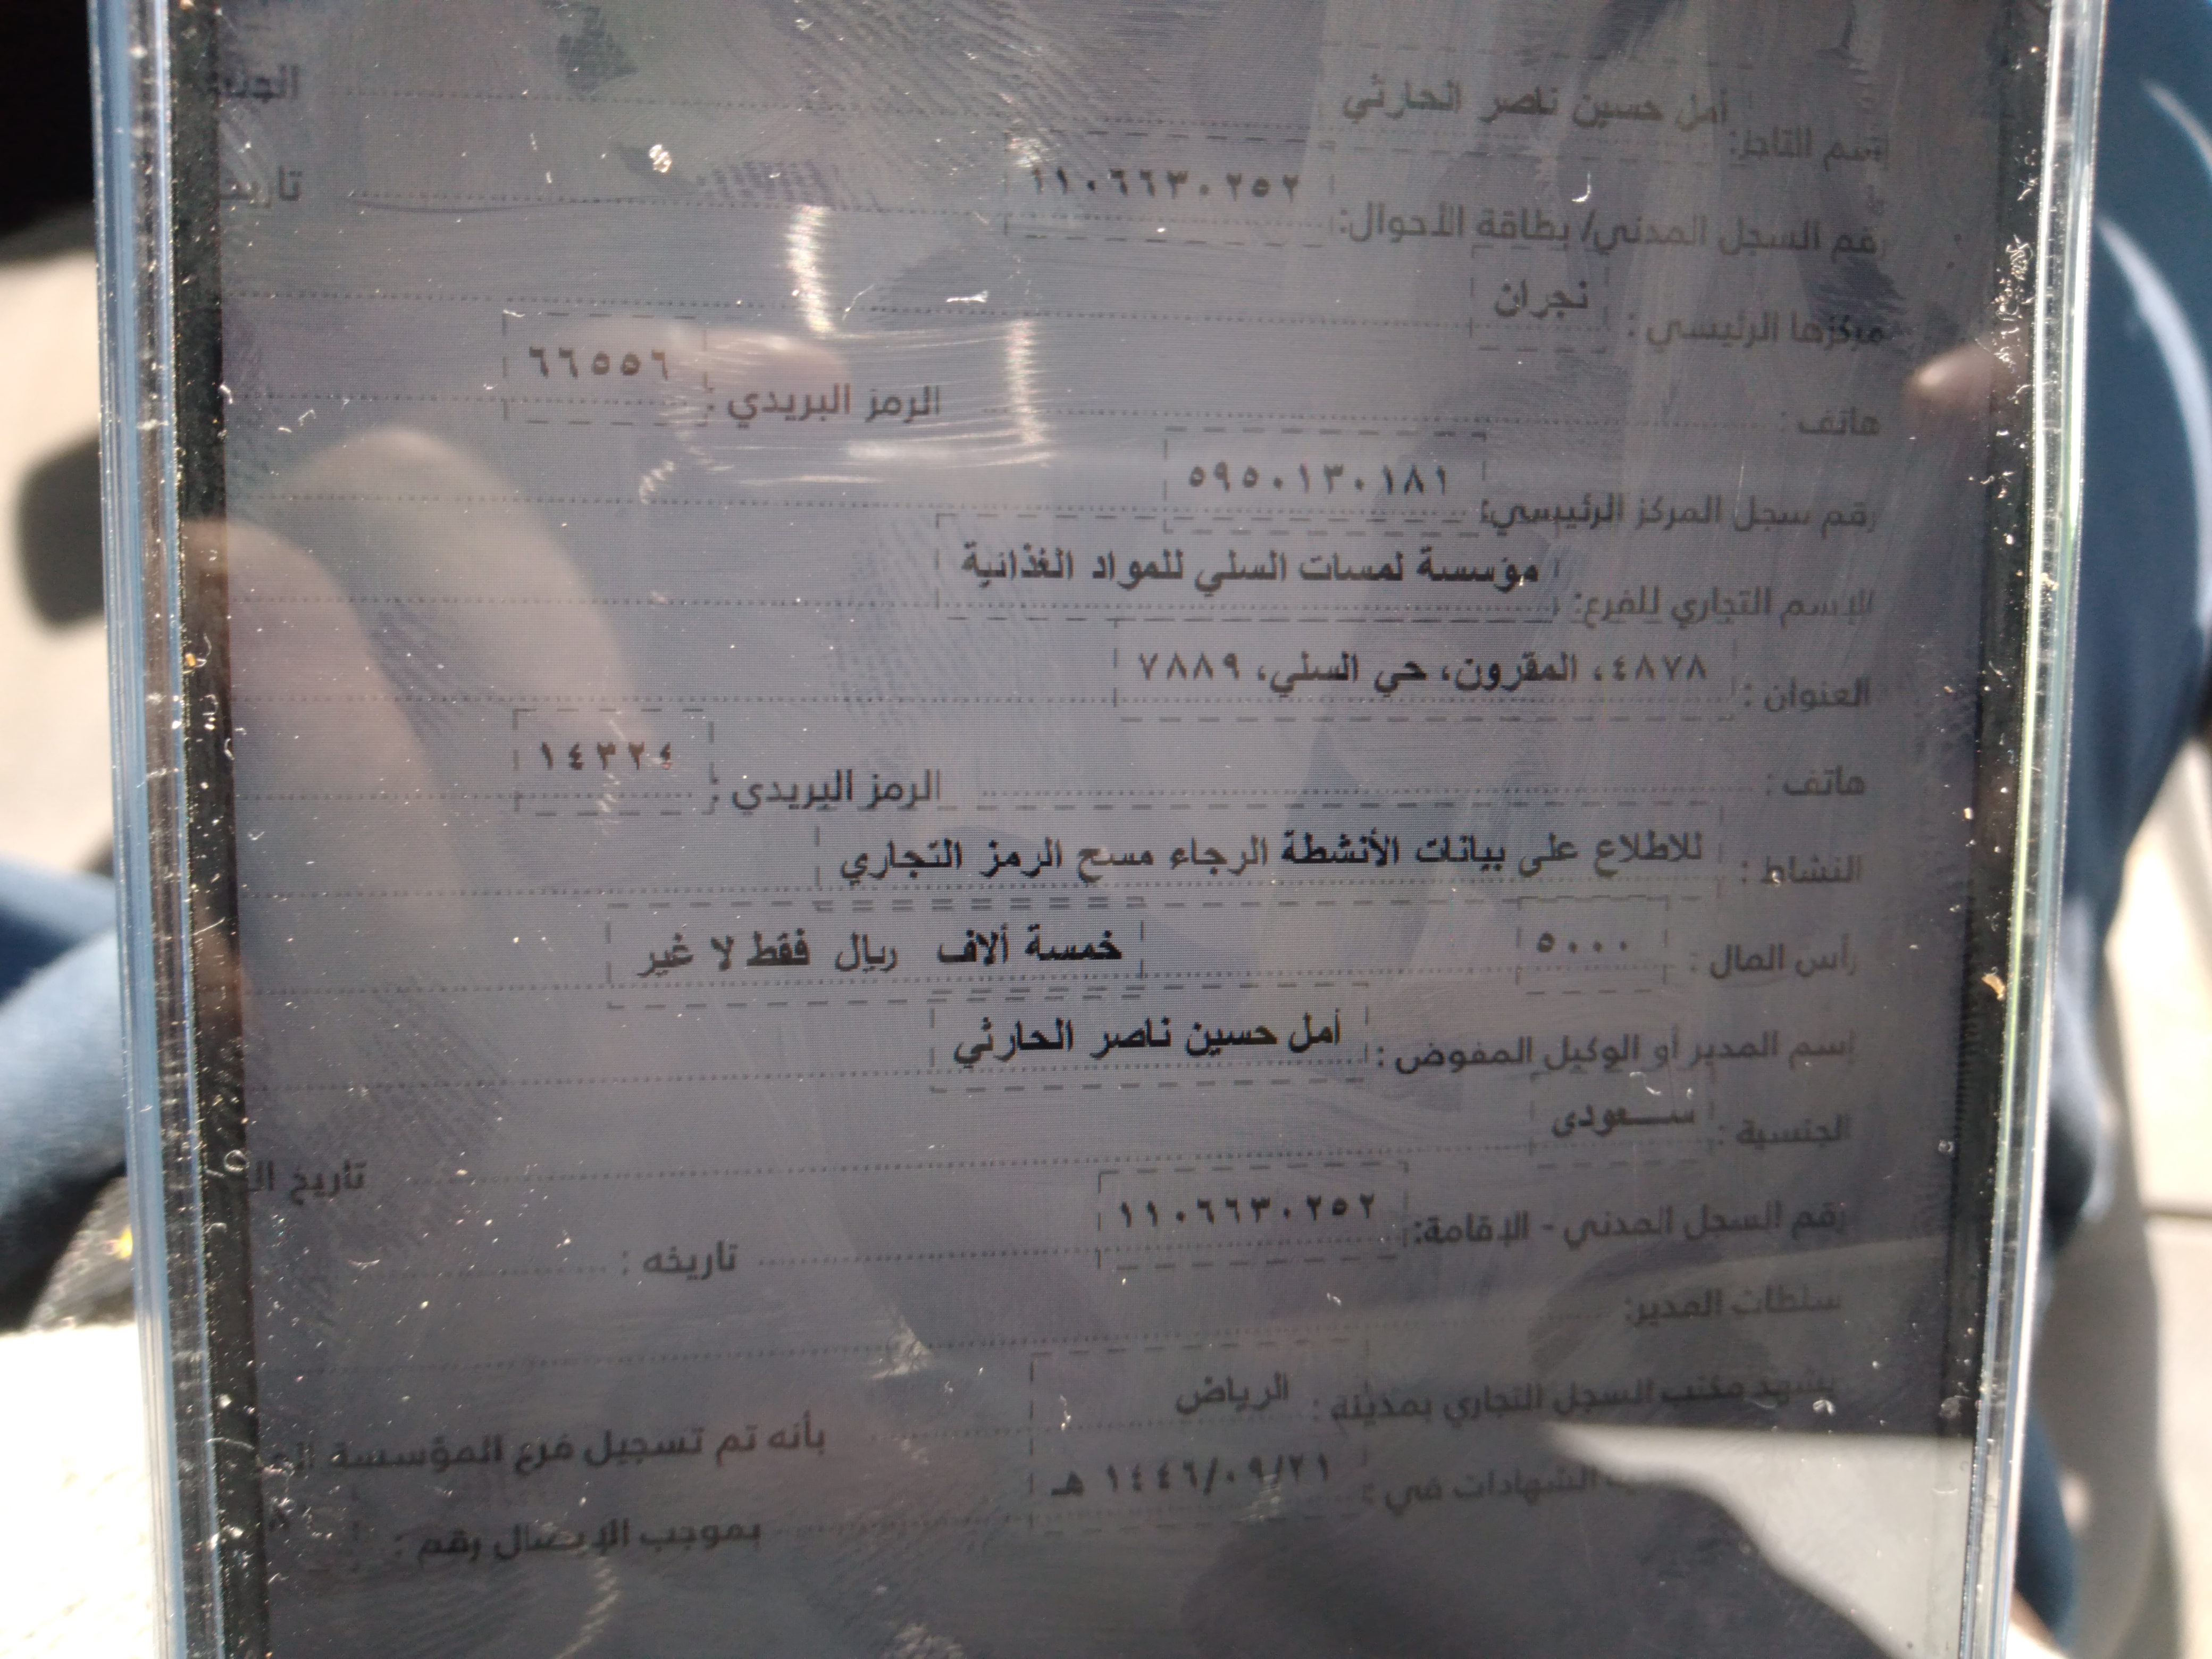 اسم التاجر: أمل حسين ناصر الحارثي
رقم السجل المدني/ بطاقة الأحوال: ١١٠٦٦٣٠٢٥٢ تاريخ
مركزها الرئيسي : نجران
هاتف : الرمز البريدي : ٦٦٥٥٦
رقم سجل المركز الرئيسي: ٥٩٥٠١٣٠١٨١
الإسم التجاري للفرع: مؤسسة لمسات السلي للمواد الغذائية
العنوان : ٤٨٧٨، المقرون، حي السلي، ٧٨٨٩
هاتف : الرمز البريدي : ١٤٣٢٤
النشاط : للاطلاع على بيانات الأنشطة الرجاء مسح الرمز التجاري
رأس المال : ٥٠٠٠ خمسة ألاف ريال فقط لا غير
اسم المدير أو الوكيل المفوض : أمل حسين ناصر الحارثي
الجنسية : سعودى تاريخ
رقم السجل المدني - الإقامة: ١١٠٦٦٣٠٢٥٢ تاريخه :
سلطات المدير:
يشهد مكتب السجل التجاري بمدينة : الرياض بأنه تم تسجيل فرع المؤسسة
الشهادات في : ١٤٤٦/٠٩/٢١ هـ بموجب الإيصال رقم :